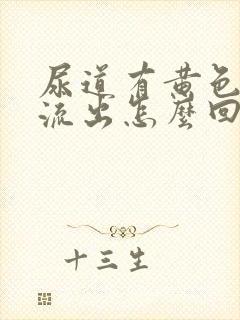 尿道有黄色
流出怎麼回
十三生